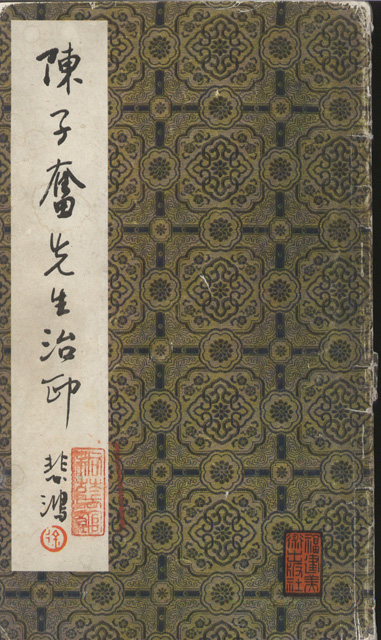 陳子奮先生治印
悲鴻
徐
福建美
術出版社